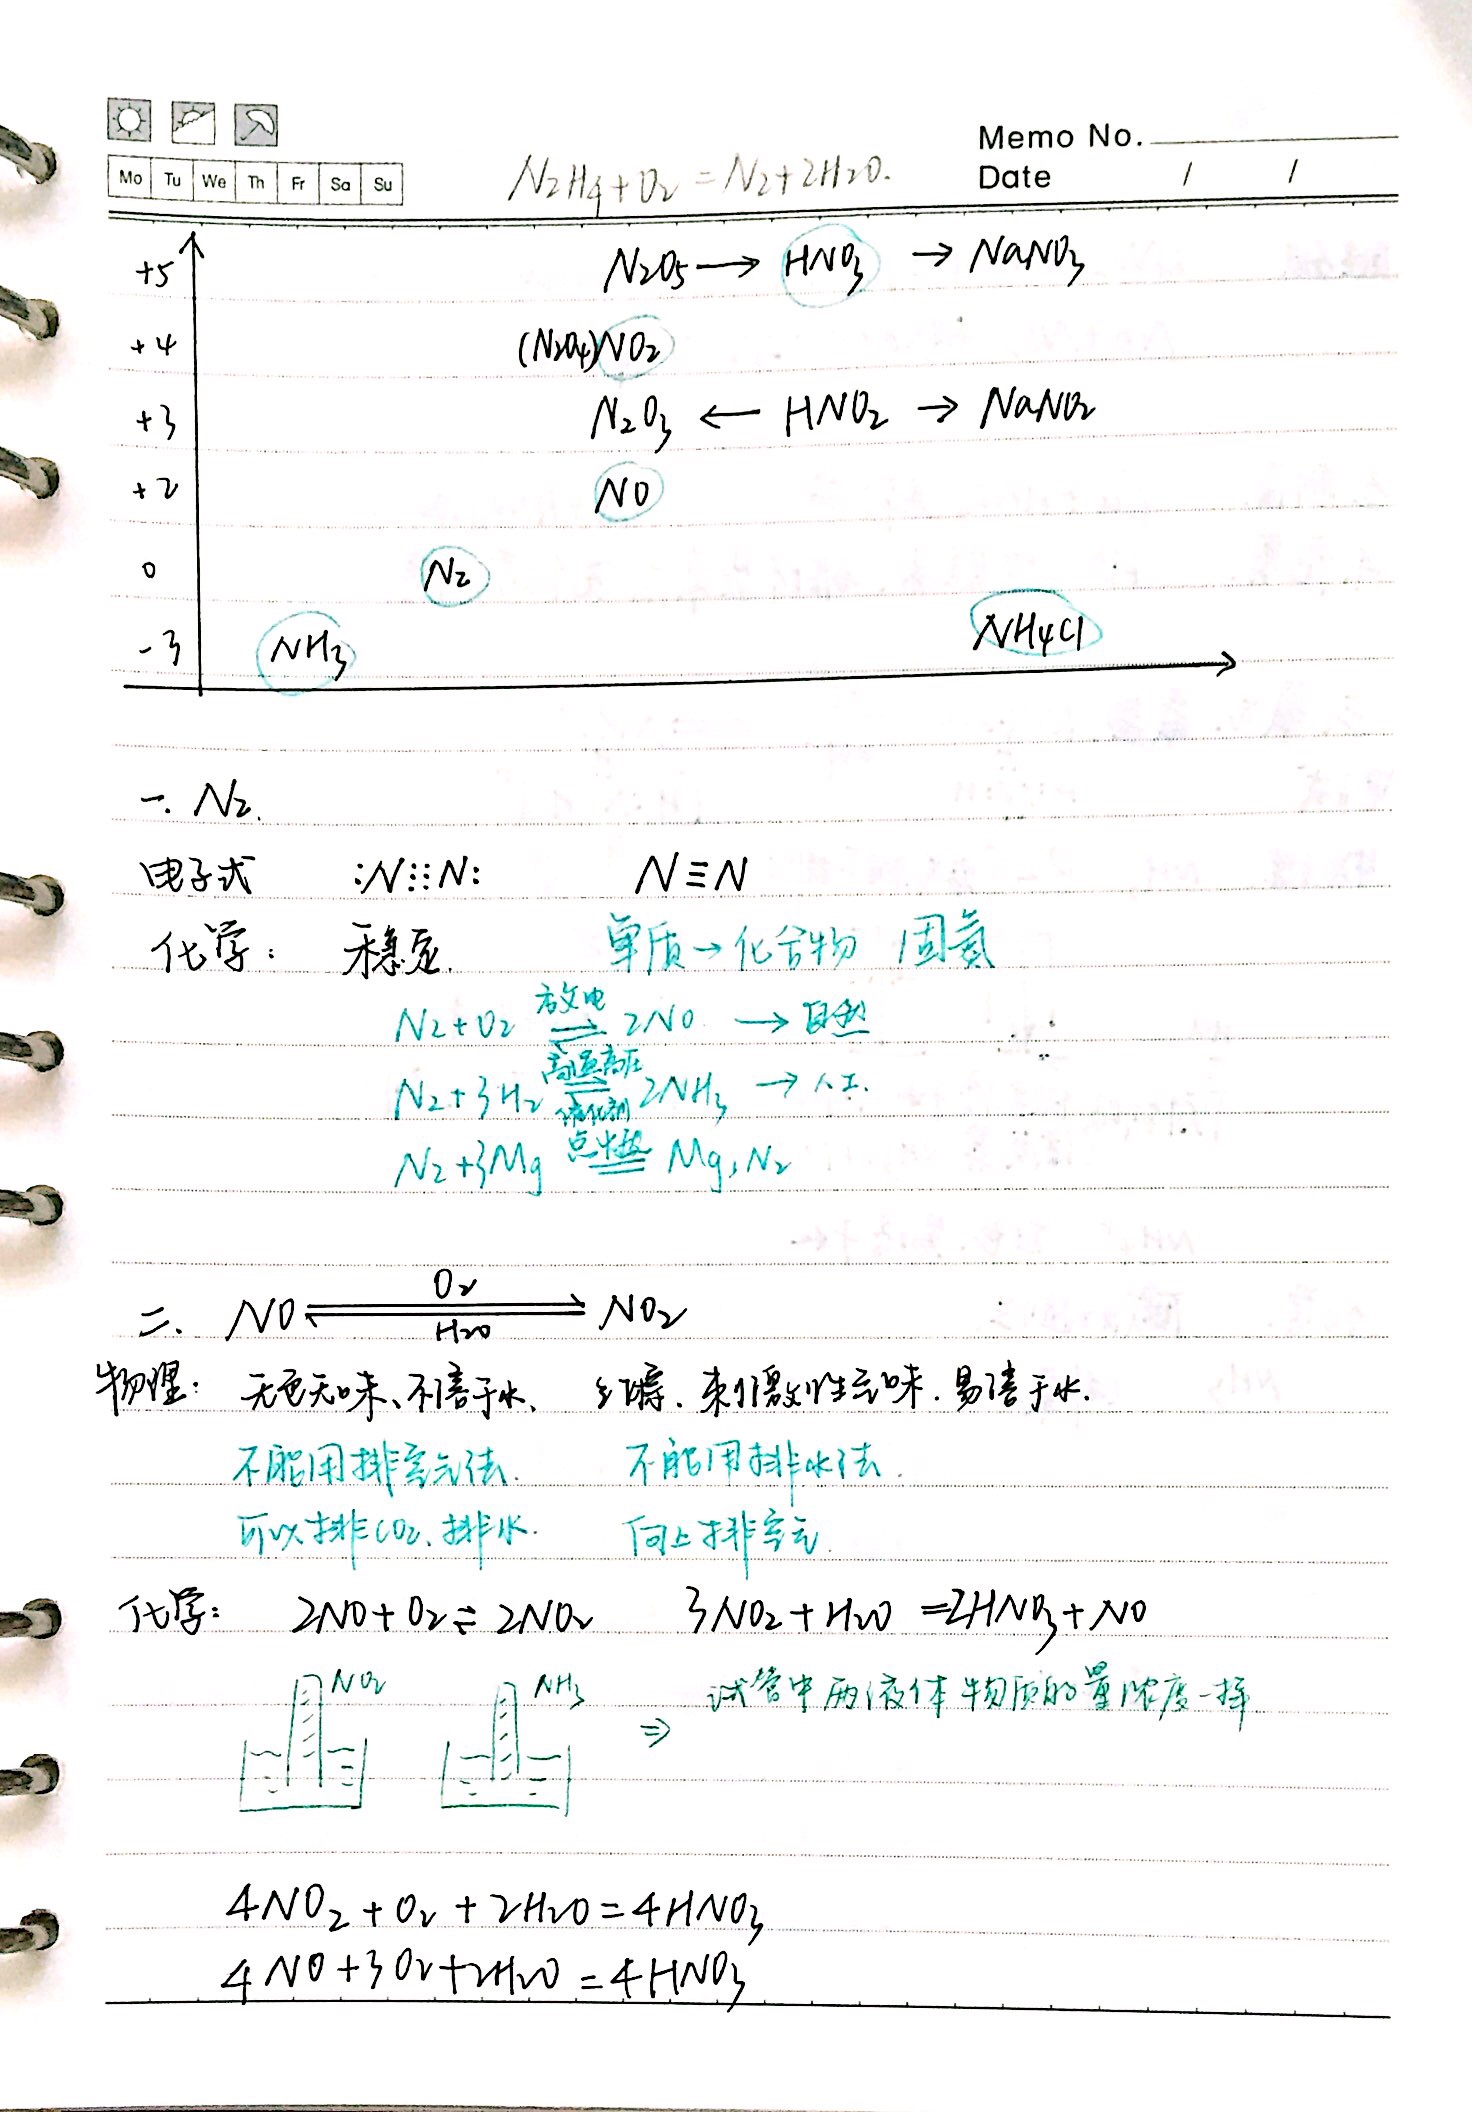 Memo No.
Mo Tu We Th Fr Sa Su
Date / /
N2H4+O2=N2+2H2O.
+5 N2O5→HNO3→NaNO3
+4 (N2O4)NO2
+3 N2O3←HNO2→NaNO2
+2 NO
0 N2
-3 NH3 NH4Cl
一. N2.
电子式 :N⋮⋮N: N≡N
化学: 稳定. 单质→化合物 固氮
放电
N2+O2⇌2NO. →自然
高温高压
N2+3H2⇌2NH3→人工.
催化剂
点燃
N2+3Mg=Mg3N2
O2
二. NO⇌NO2
H2O
物理: 无色无味、不溶于水、 红棕、刺激性气味、易溶于水.
不能用排空气法. 不能用排水法.
可以排CO2、排水. 向上排空气.
化学: 2NO+O2⇌2NO2 3NO2+H2O=2HNO3+NO
NO2 NH3 ⇒ 试管中两液体物质的量浓度一样
4NO2+O2+2H2O=4HNO3
4NO+3O2+2H2O=4HNO3